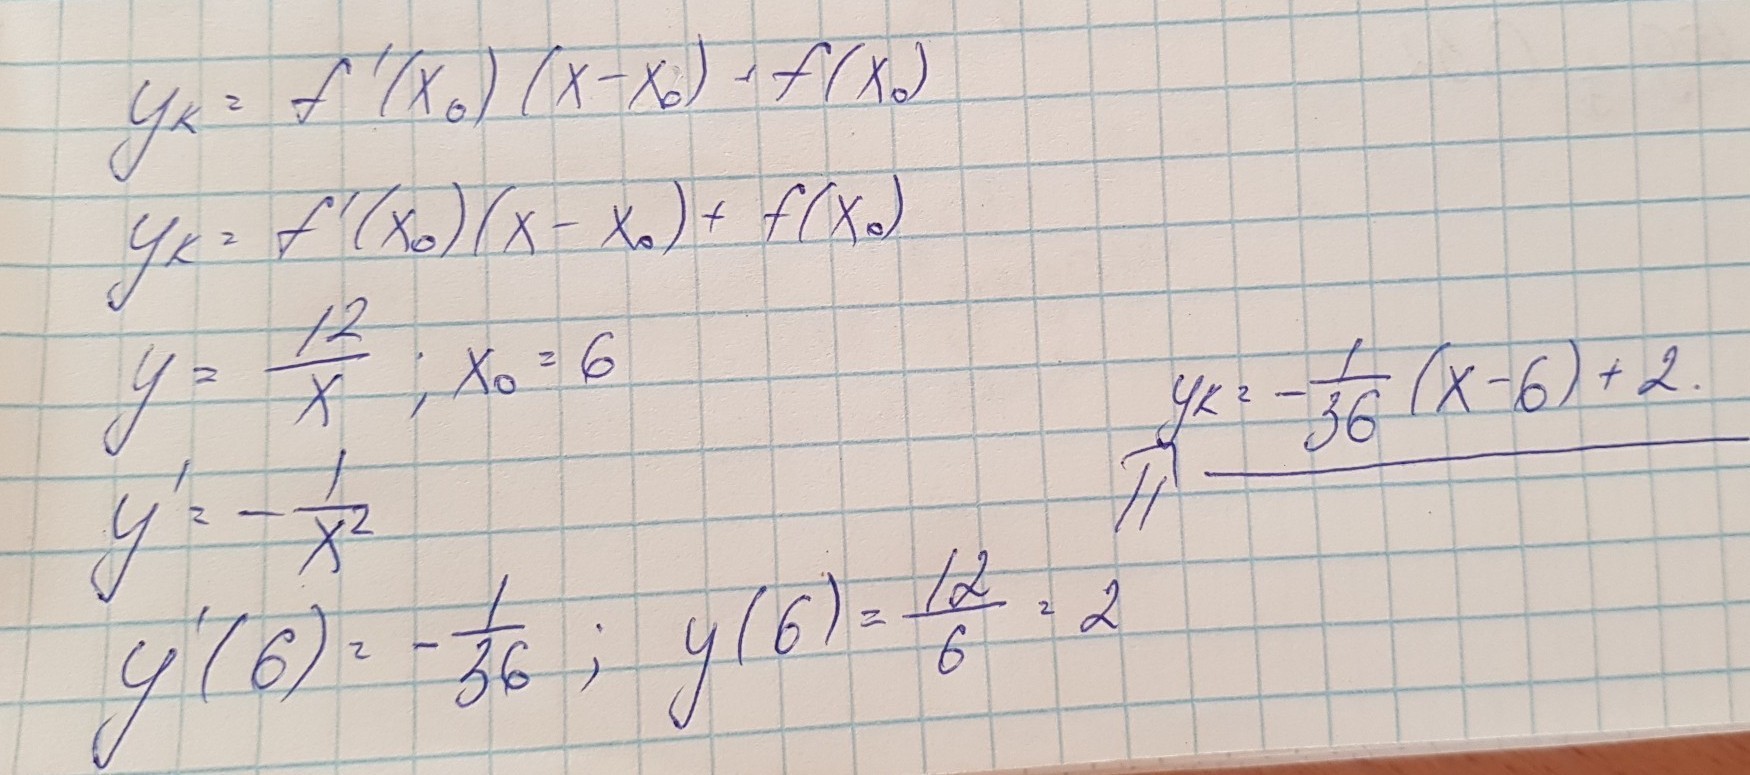 yк = f'(x₀)(x-x₀) + f(x₀)
yк = f'(x₀)(x - x₀) + f(x₀)
y = 12/x ; x₀ = 6
y' = -1/x²
y'(6) = -1/36 ; y(6) = 12/6 = 2
yк = -1/36 (x-6) + 2.